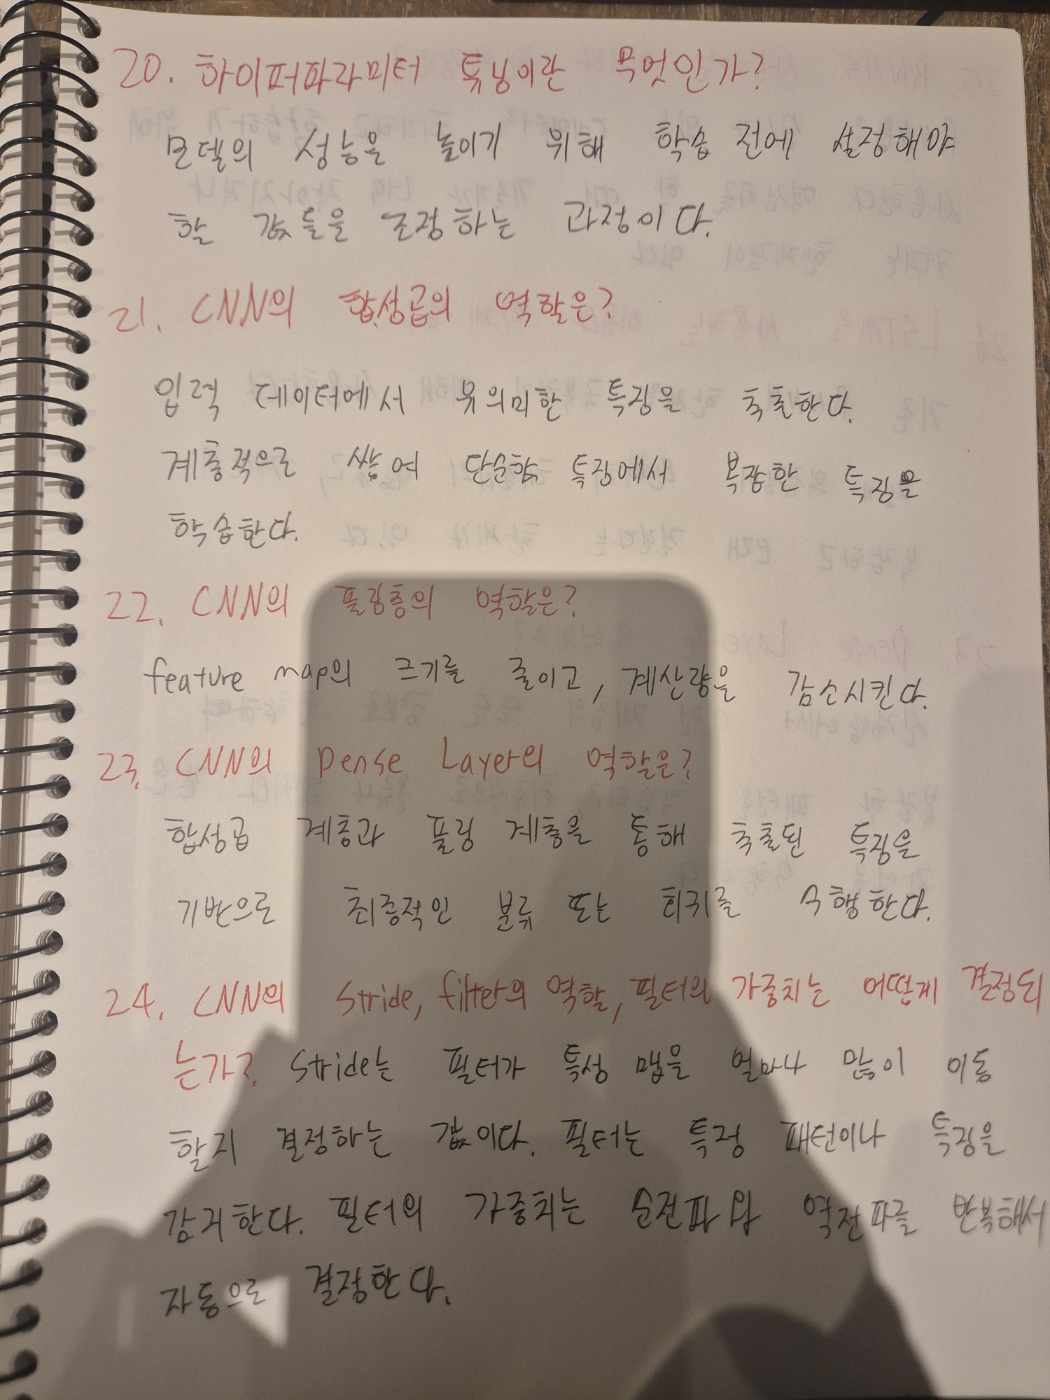 20. 하이퍼파라미터 튜닝이란 무엇인가?
모델의 성능을 높이기 위해 학습 전에 설정해야
할 값들을 조정하는 과정이다.
21. CNN의 합성곱의 역할은?
입력 데이터에서 유의미한 특징을 추출한다.
계층적으로 쌓여 단순한 특징에서 복잡한 특징을
학습한다.
22. CNN의 풀링층의 역할은?
feature map의 크기를 줄이고, 계산량을 감소시킨다.
23. CNN의 Dense Layer의 역할은?
합성곱 계층과 풀링 계층을 통해 추출된 특징을
기반으로 최종적인 분류 또는 회귀를 수행한다.
24. CNN의 Stride, filter의 역할, 필터의 가중치는 어떻게 결정되
는가? Stride는 필터가 특성 맵을 얼마나 많이 이동
할지 결정하는 값이다. 필터는 특정 패턴이나 특징을
감지한다. 필터의 가중치는 순전파와 역전파를 반복해서
자동으로 결정한다.